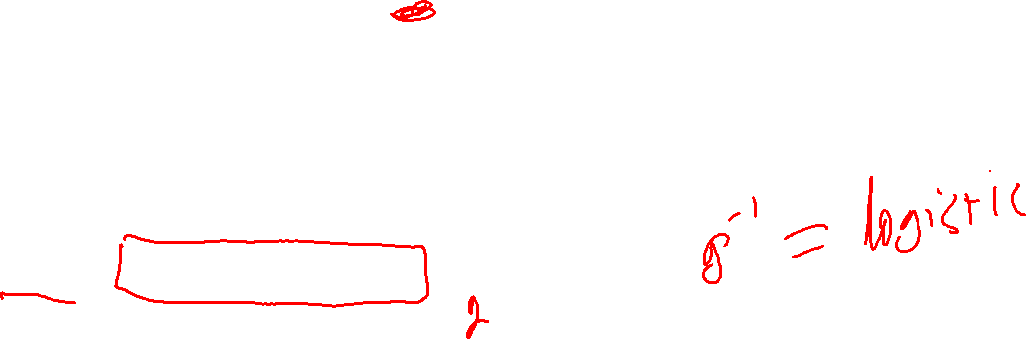 g⁻¹ = logistic
2